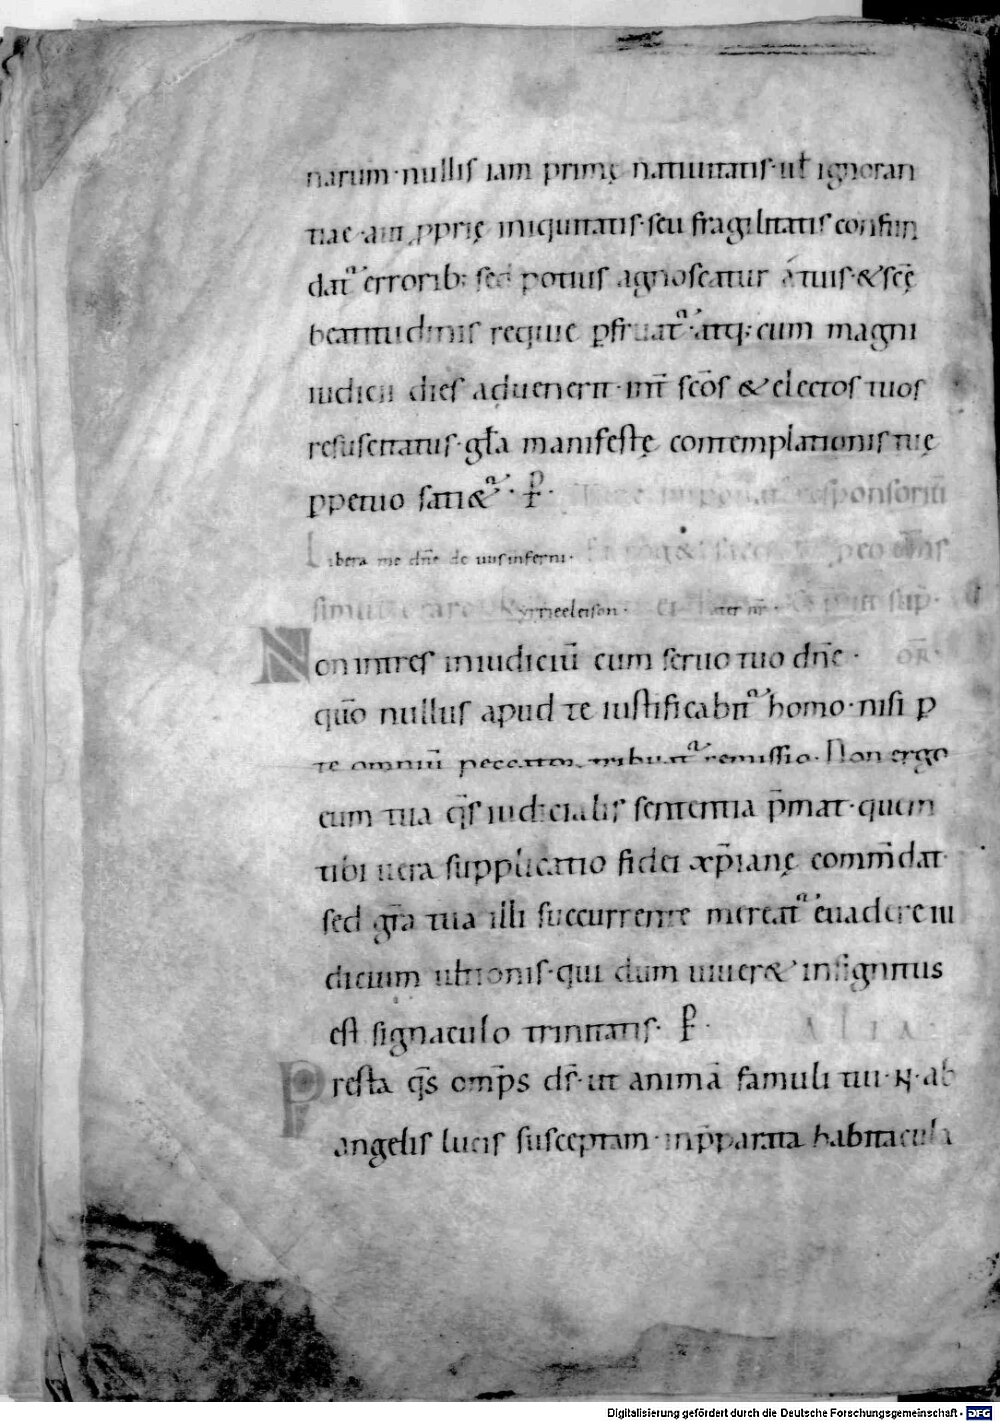 narum·nullis iam primę natiuitatis·ut̄ ignoran
tiae·aut ꝓprię iniquitatis·seu fragilitatis confun
dat᷑ errorib; sed potius agnoscatur a tuis·&scē
beatitudinis requie ꝑfruat᷑·atq; cum magni
iudicii dies aduenerit·int̄ sc̄os & electos tuos
resuscitatus·gl̄a manifestę contemplationis tuę
ꝑpetuo sati&᷑· ꝑ· responsoriū
Libera me dn̄e de uiis inferni·
simul kyrrieeleison· pater nr̄· sup·
Non intres iniudiciū cum seruo tuo dn̄e· OR̄·
quo̅ nullus apud te iustificabit᷑ homo·nisi ꝑ
te omniū peccatorum tribuat᷑ remissio. Non ergo
eum tua q̄s iudicialis sententia p̄mat·quem
tibi uera supplicatio fidei xp̄ianę comm̄dat·
sed gr̄a tua illi succurrente mereat᷑ euadere iu
dicium ultionis·qui dum uiuer& insignitus
est signaculo trinitatis· ꝑ· ALIA·
Presta q̄s omp̄s ds̄·ut animā famuli tui·N·ab
angelis lucis susceptam·inp̄parata habitacula
Digitalisierung gefördert durch die Deutsche Forschungsgemeinschaft - DFG